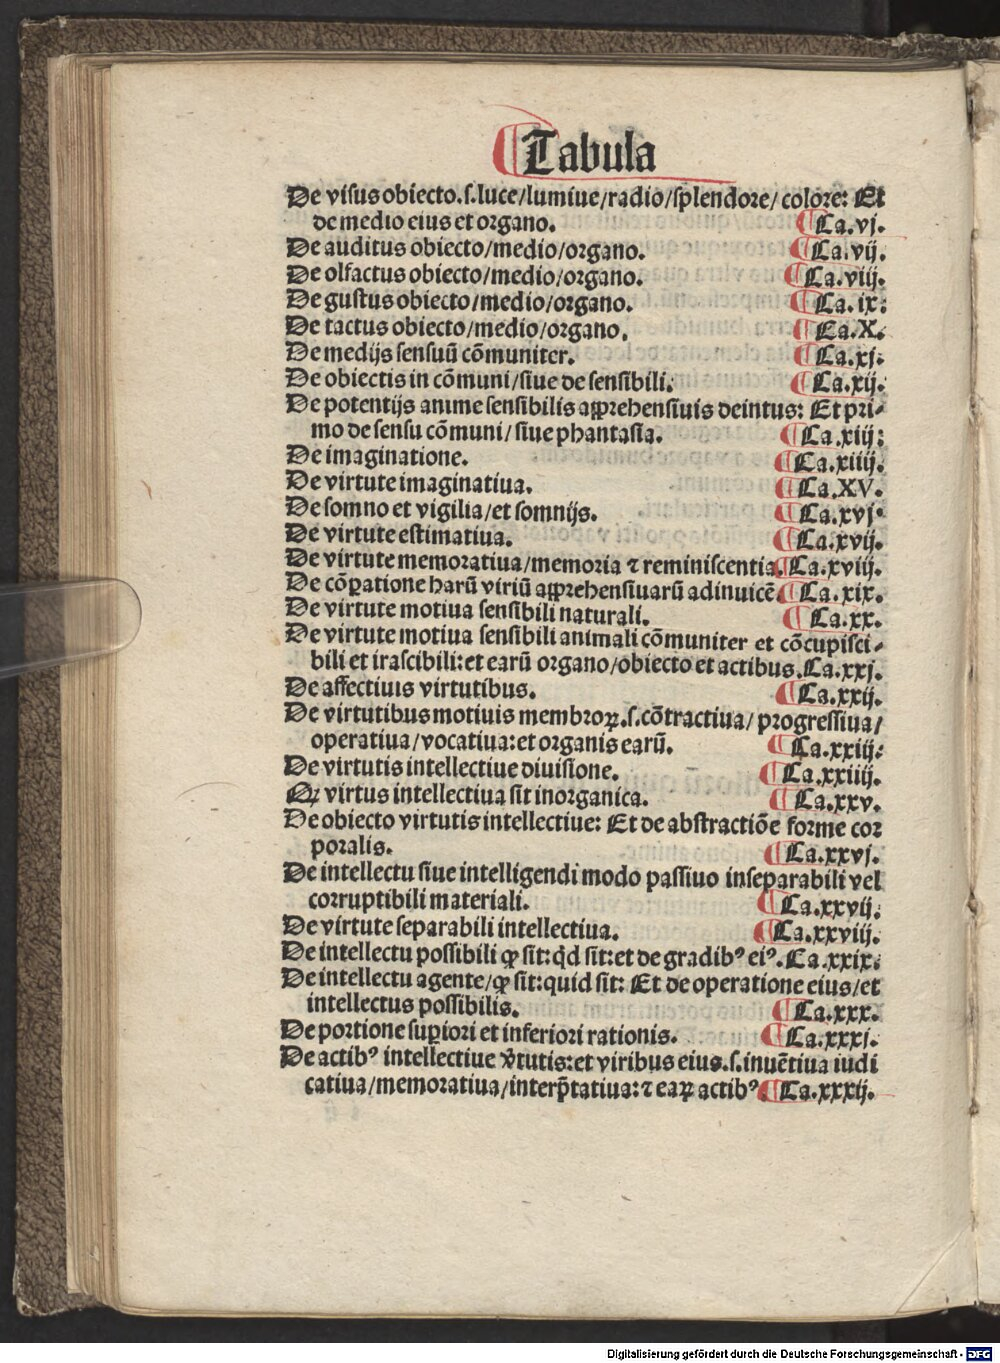 Tabula
De visus obiecto.s.luce/lumiue/radio/splendore/colore: Et
de medio eius et organo. Ca.vj.
De auditus obiecto/medio/organo. Ca.vij.
De olfactus obiecto/medio/organo. Ca.viij.
De gustus obiecto/medio/organo. Ca.ix:
De tactus obiecto/medio/organo. Ca.X.
De medijs sensuū cōmuniter. Ca.xj.
De obiectis in cōmuni/siue de sensibili. Ca.xij.
De potentijs anime sensibilis apprehensiuis deintus: Et pri-
mo de sensu cōmuni/siue phantasia. Ca.xiij:
De imaginatione. Ca.xiiij.
De virtute imaginatiua. Ca.XV.
De somno et vigilia/et somnijs. Ca.xvj.
De virtute estimatiua. Ca.xvij.
De virtute memoratiua/memoria ⁊ reminiscentia. Ca.xviij.
De cōꝑatione harū viriū apprehensiuarū adinuicē. Ca.xix.
De virtute motiua sensibili naturali. Ca.xx.
De virtute motiua sensibili animali cōmuniter et cōcupisci-
bili et irascibili:et earū organo/obiecto et actibus. Ca.xxj.
De affectiuis virtutibus. Ca.xxij.
De virtutibus motiuis membroꝝ.s.cōtractiua/progressiua/
operatiua/vocatiua:et organis earū. Ca.xxiij:
De virtutis intellectiue diuisione. Ca.xxiiij.
Qꝫ virtus intellectiua sit inorganica. Ca.xxv.
De obiecto virtutis intellectiue: Et de abstractiōe forme cor
poralis. Ca.xxvj.
De intellectu siue intelligendi modo passiuo inseparabili vel
corruptibili materiali. Ca.xxvij.
De virtute separabili intellectiua. Ca.xxviij.
De intellectu possibili ꝙ sit:qd̄ sit:et de gradibꝰ eiꝰ. Ca.xxix.
De intellectu agente/ꝙ sit:quid sit: Et de operatione eius/et
intellectus possibilis. Ca.xxx.
De portione suꝑiori et inferiori rationis. Ca.xxxj.
De actibꝰ intellectiue v̄tutis:et viribus eius.s.inuētiua iudi
catiua/memoratiua/interp̄tatiua:⁊ eaꝝ actibꝰ. Ca.xxxij.
Digitalisierung gefördert durch die Deutsche Forschungsgemeinschaft - DFG